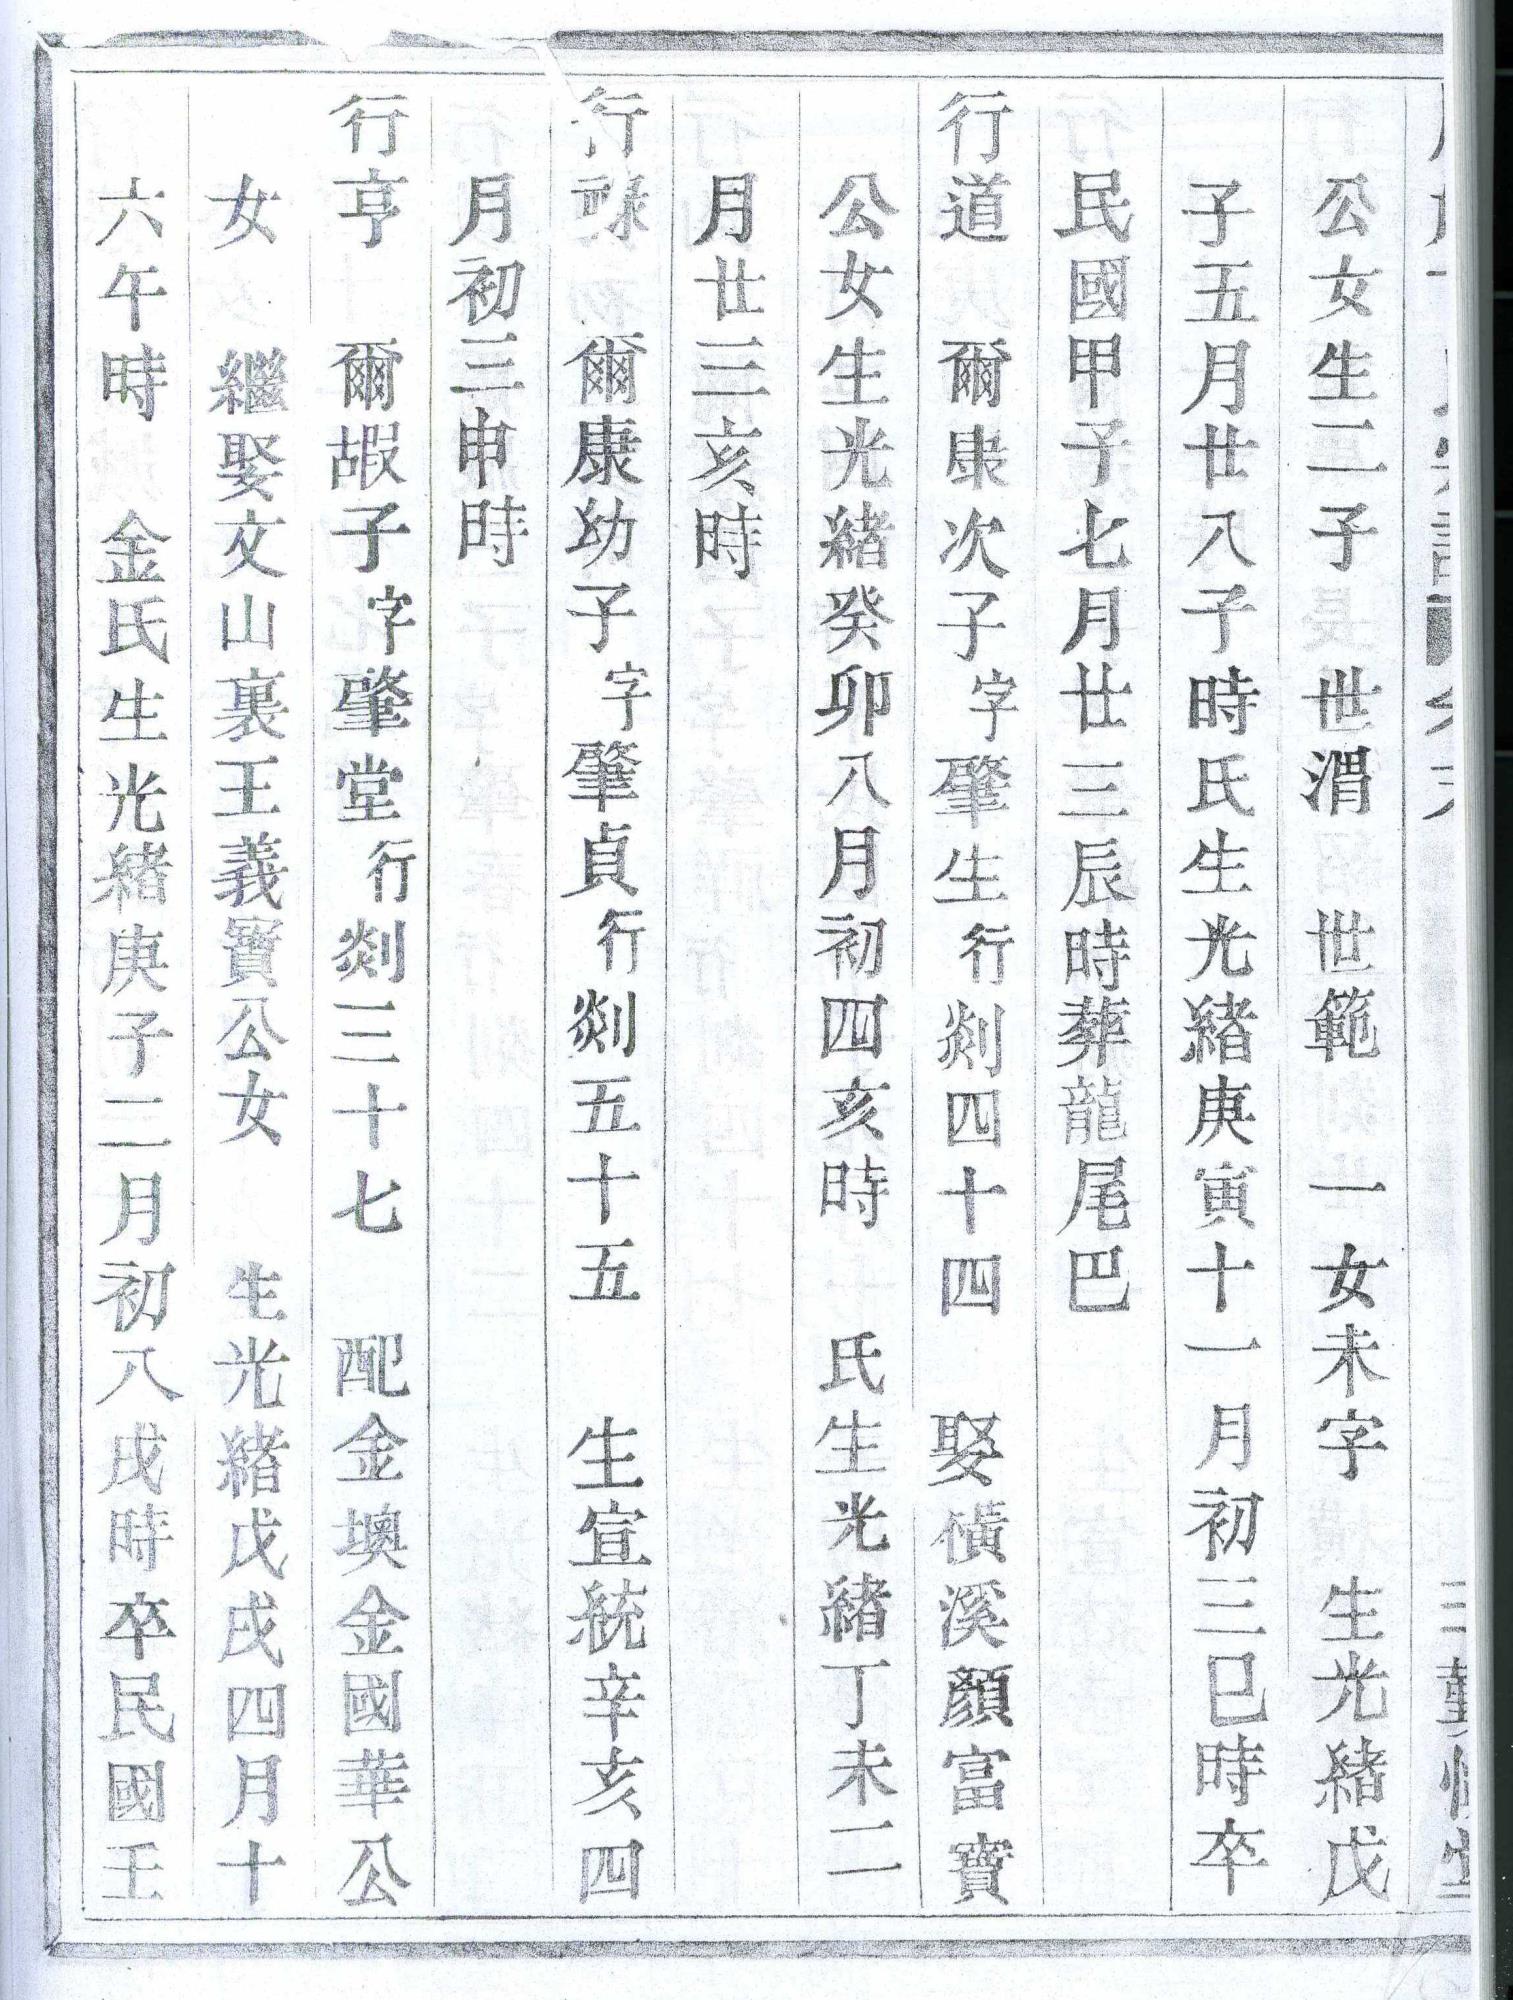 公女生二子　世渭　世範　一女未字　生光緒戊
子五月廿八子時氏生光緒庚寅十一月初三巳時卒
民國甲子七月廿三辰時葬龍尾巴
行道　爾康次子字肇生行剡四十四　娶橫溪顏富寶
公女生光緒癸卯八月初四亥時　氏生光緒丁未二
月廿三亥時
行祿　爾康幼子字肇貞行剡五十五　生宣統辛亥四
月初三申時
行亨　爾嘏子字肇堂行剡三十七　配金墺金國華公
女　繼娶文山裏王義寶公女　生光緒戊戌四月十
六午時　金氏生光緒庚子二月初八戌時卒民國壬